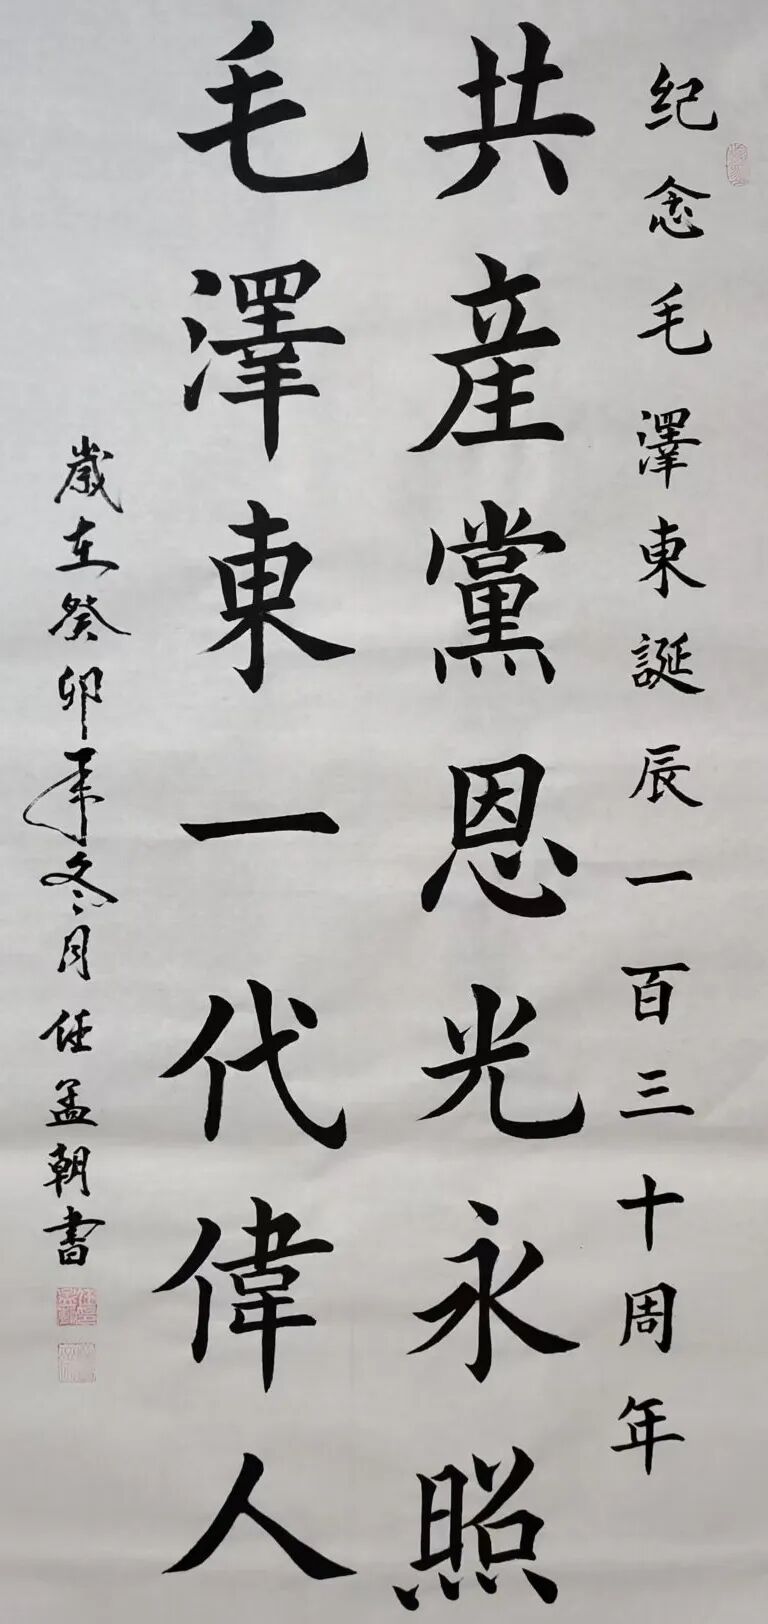 纪念毛澤東誕辰一百三十周年
共産黨恩光永照
毛澤東一代偉人
歲在癸卯年冬月任孟朝書